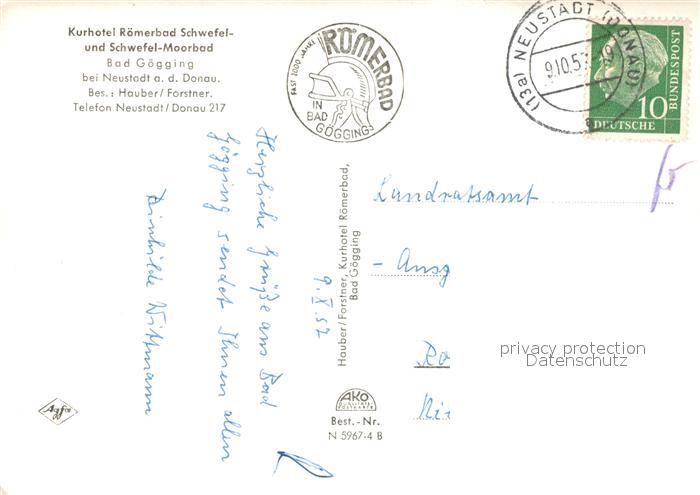 Kurhotel Römerbad Schwefel-
und Schwefel-Moorbad
Bad Gögging
bei Neustadt a. d. Donau.
Bes.: Hauber/Forstner.
Telefon Neustadt/Donau 217
FAST 2000 JAHRE
RÖMERBAD
IN
BAD
GÖGGING
(13a) NEUSTADT (DONAU)
9.10.57
10
DEUTSCHE
BUNDESPOST
Herzliche Grüße aus Bad
Gögging sendet Ihnen allen
Reinhilde Wittmann
9.X.57
Hauber/Forstner, Kurhotel Römerbad,
Bad Gögging
Landratsamt
- Ausg
Ro
privacy protection
Datenschutz
AKO
QUALITÄTS-
POSTKARTE
Best.-Nr.
N 5967-4 B
Agfa